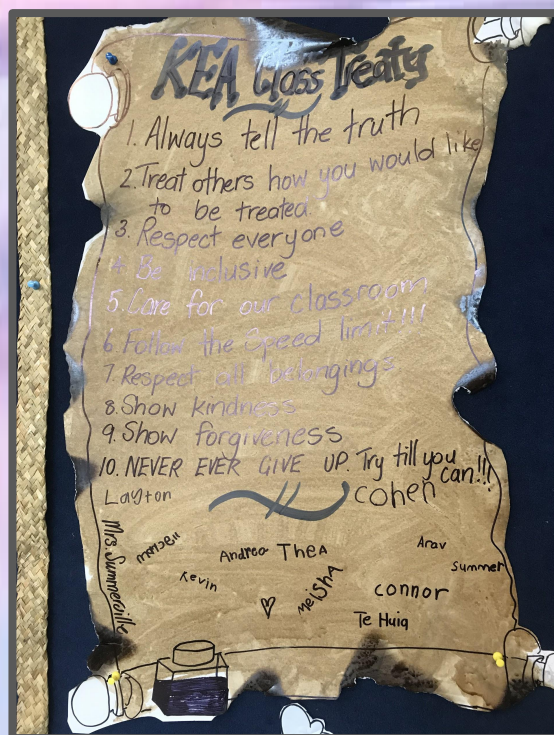 KEA Class Treaty
1. Always tell the truth
2. Treat others how you would like
to be treated
3. Respect everyone
4. Be inclusive
5. Care for our classroom
6. Follow the Speed limit!!!
7. Respect all belongings
8. Show kindness
9. Show forgiveness
10. NEVER EVER GIVE UP. Try till you
can!!!
Layton
cohen
Mrs. Summerville
Andrea
Thea
Arav
Summer
Kevin
meisha
connor